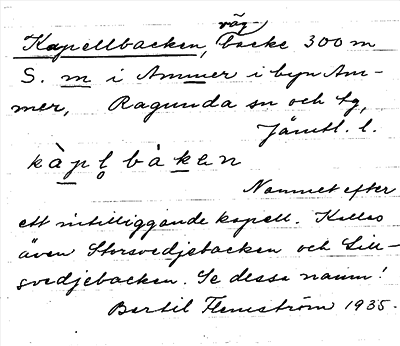 väg-
Kapellbacken, backe 300 m
S. m i Ammer i byn Am-
mer, Ragunda sn och tg,
Jämtl. l.
kàpl̥ bàken
Namnet efter
ett intilliggande kapell. Kallas
även Storsvedjebacken och Lill-
svedjebacken. Se dessa namn!
Bertil Flemström 1935.